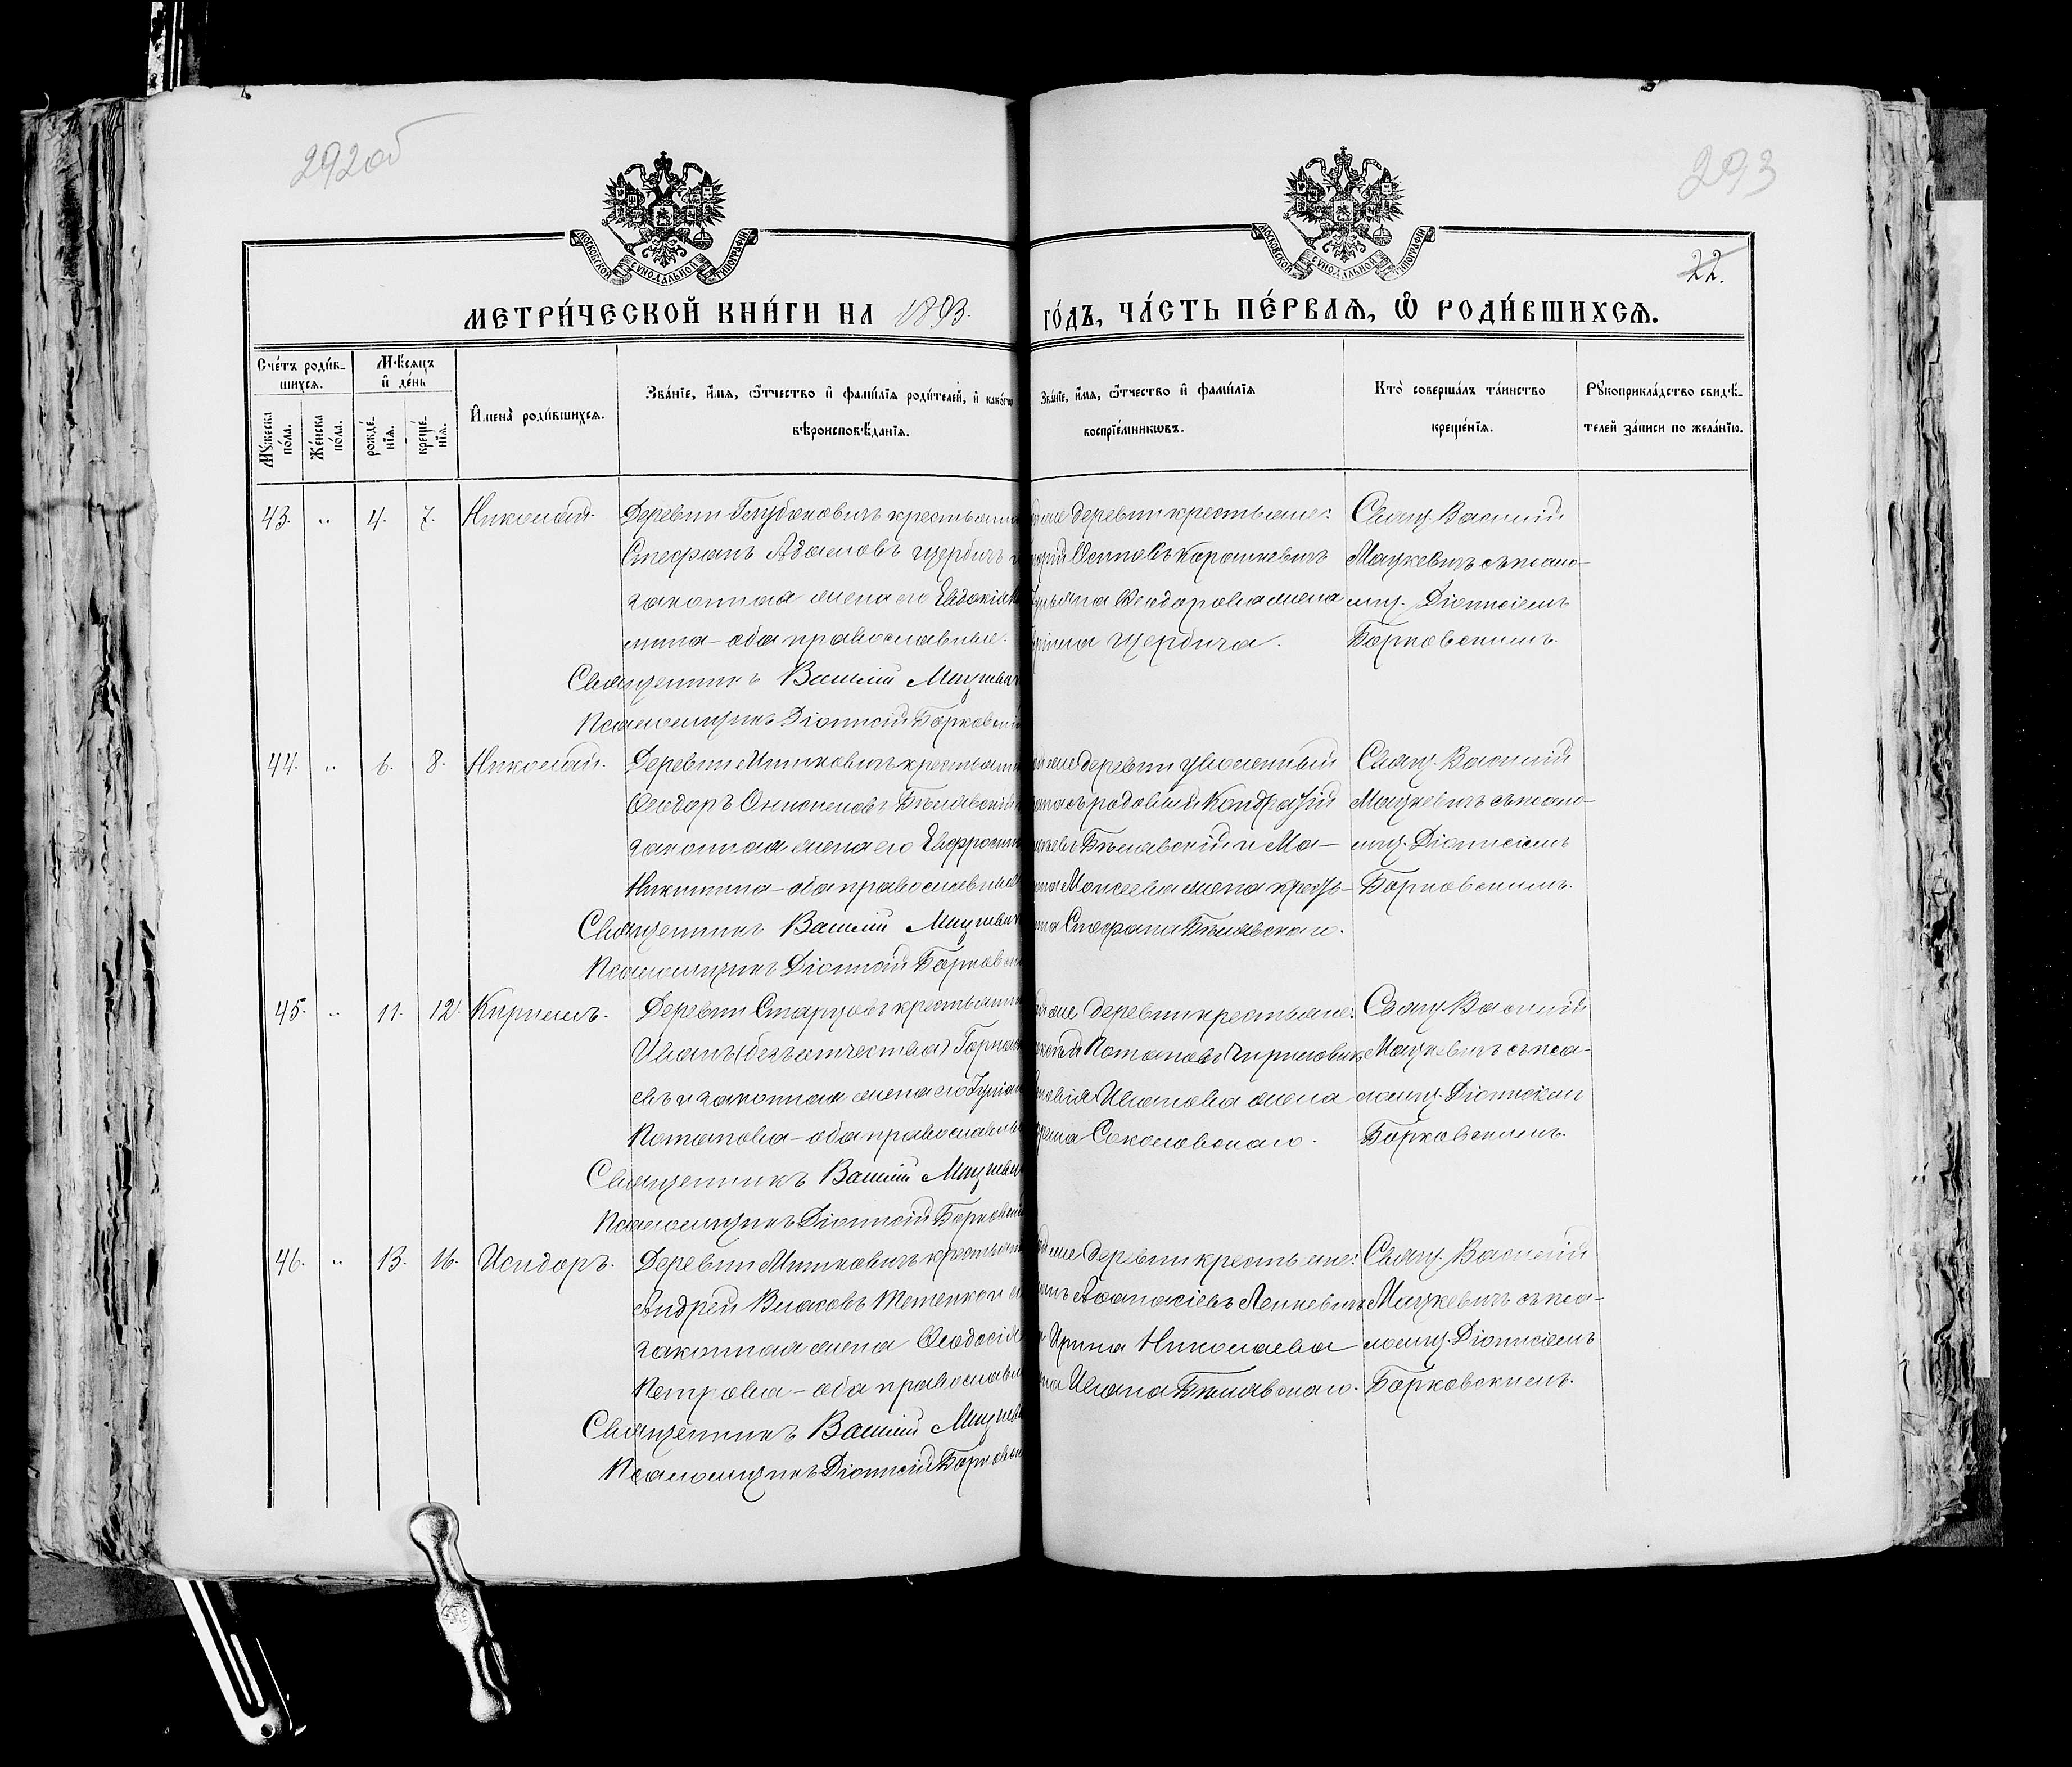 292об
293
22.
МОСКОВСКОЙ СѴНОДАЛЬНОЙ ТИПОГРАФІИ
МОСКОВСКОЙ СѴНОДАЛЬНОЙ ТИПОГРАФІИ
МЕТРИ́ЧЕСКОЙ КНИ́ГИ НА 1893.
ГО́ДЪ, ЧА́СТЬ ПЕ́РВАѦ, Ѽ РОДИ́ВШИХСѦ.
Сче́тъ роди́в-
шихсѧ.
Мѣ́сѧцъ
и҆ де́нь
Мꙋ́жеска
по́ла.
Же́нска
по́ла.
рожде́-
нїѧ.
креще́-
нїѧ.
И҆мена̀ роди́вшихсѧ.
Зва́нїе, и҆́мѧ, ѻ҆́тчество и҆ фами́лїѧ роди́телей, и҆ како́гѡ
вѣроисповѣ́данїѧ.
Зва́нїе, и҆́мѧ, ѻ҆́тчество и҆ фами́лїѧ
воспрїе́мникѡвъ.
Кто̀ соверша́лъ та́инство
креще́нїѧ.
Рꙋкоприкла́дство свидѣ́-
телей за́писи по жела́нїю.
43. „ 4. 7. Николай.
Деревни крестьянин
Стефанъ Адамовъ Щербичъ и
законная жена его Евдокія
оба православные.
Священникъ Василій Мацкевич
Псаломщикъ Діонисій Борковскій
деревни крестьяне:
Осиповъ Корашкевичъ
Ѳеодорова жена
Щербича.
Свящ. Василій
Мацкевичъ съ псало-
мщ. Діонисіемъ
Борковскимъ.
44. „ 6. 8. Николай.
Деревни Мишковичъ крестьянин
Ѳеодоръ Бѣлявскій
законная жена его Евфросин
Никитина – оба православные
Священникъ Василій Мацкевич
Псаломщикъ Діонисій Борковск
деревни уволенный
Кондратій
Бѣлявскій и Ма-
Моисеева жена кресть-
Стефана Бѣлявскаго.
Свящ. Василій
Мацкевичъ съ псало-
мщ. Діонисіемъ
Борковскимъ.
45. „ 11. 12. Кириллъ.
Деревни Старцовъ крестьянин
Иванъ (безъ отчества)
евъ и законная жена его
Потапова – оба православны
Священникъ Василій Мацкевич
Псаломщикъ Діонисій Борковскій
деревни крестьяне:
Потаповъ
Иванова жена
Соколовскаго.
Свящ. Василій
Мацкевичъ съ пса-
ломщ. Діонисіемъ
Борковскимъ.
46. „ 13. 16. Исидоръ.
Деревни Мишковичъ крестьян
Андрей Власовъ
законная жена Ѳеодосія
Петрова – оба православн
Священникъ Василій Мацкев
Псаломщикъ Діонисій Борковск
деревни крестьяне:
Аѳанасіевъ Ленкевичъ
Ирина Николаева
Ивана Бѣлявскаго.
Свящ. Василій
Мацкевичъ съ пса-
ломщ. Діонисіемъ
Борковскимъ.